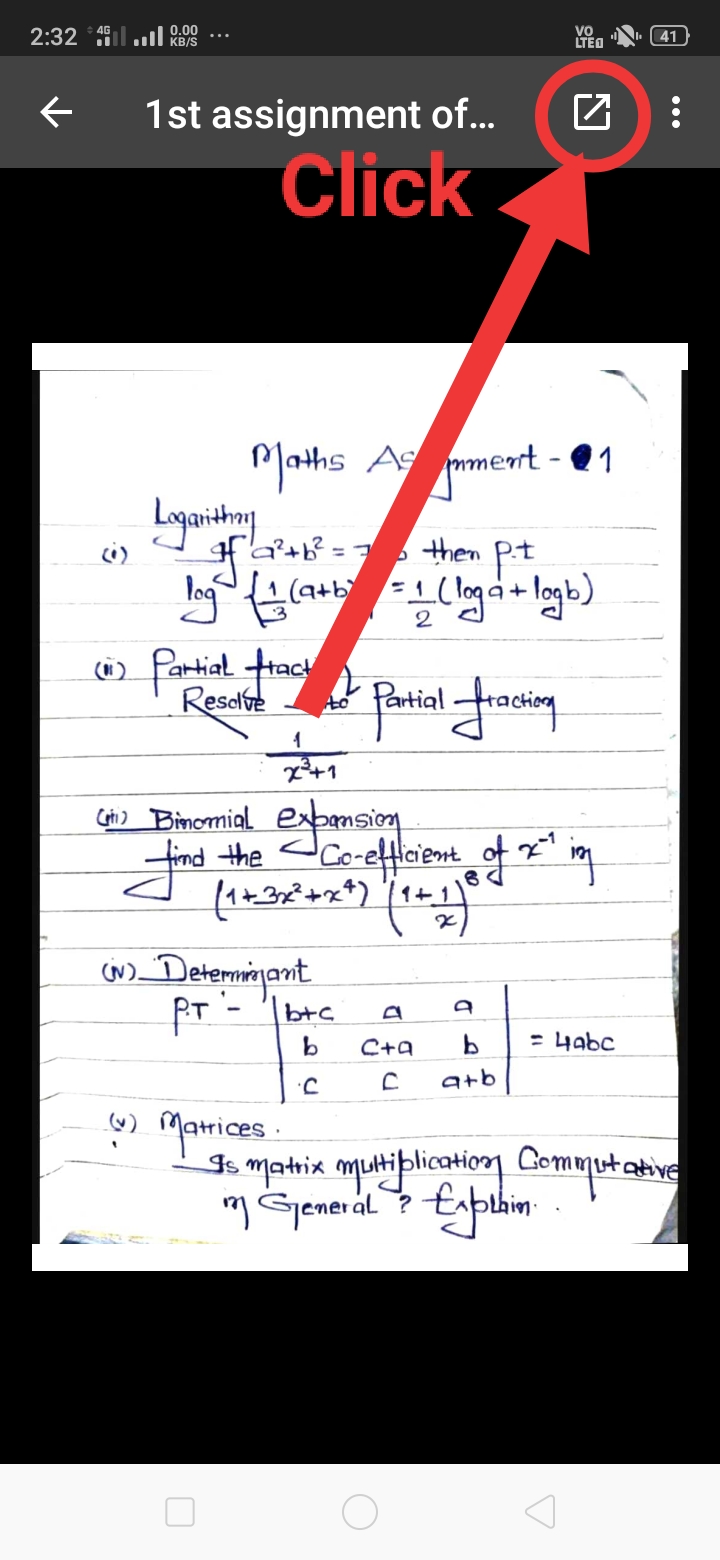 2:32 4G 0.00 KB/S ... VO LTE 41
1st assignment of...
Click
Maths Assignment - 1
Logarithm
(i) If a²+b² = 7 then P.t
log {1/3 (a+b = 1/2 (log a + log b)
(ii) Partial fract
Resolve to Partial fraction
1/(x³+1)
(iii) Binomial expansion
find the Co-efficient of x⁻¹ in
(1+3x²+x⁴) (1+1/x)⁸
(iv) Determinant
P.T :- | b+c a a |
| b c+a b | = 4abc
| c c a+b |
(v) Matrices.
Is matrix multiplication Commutative
in General ? Explain.